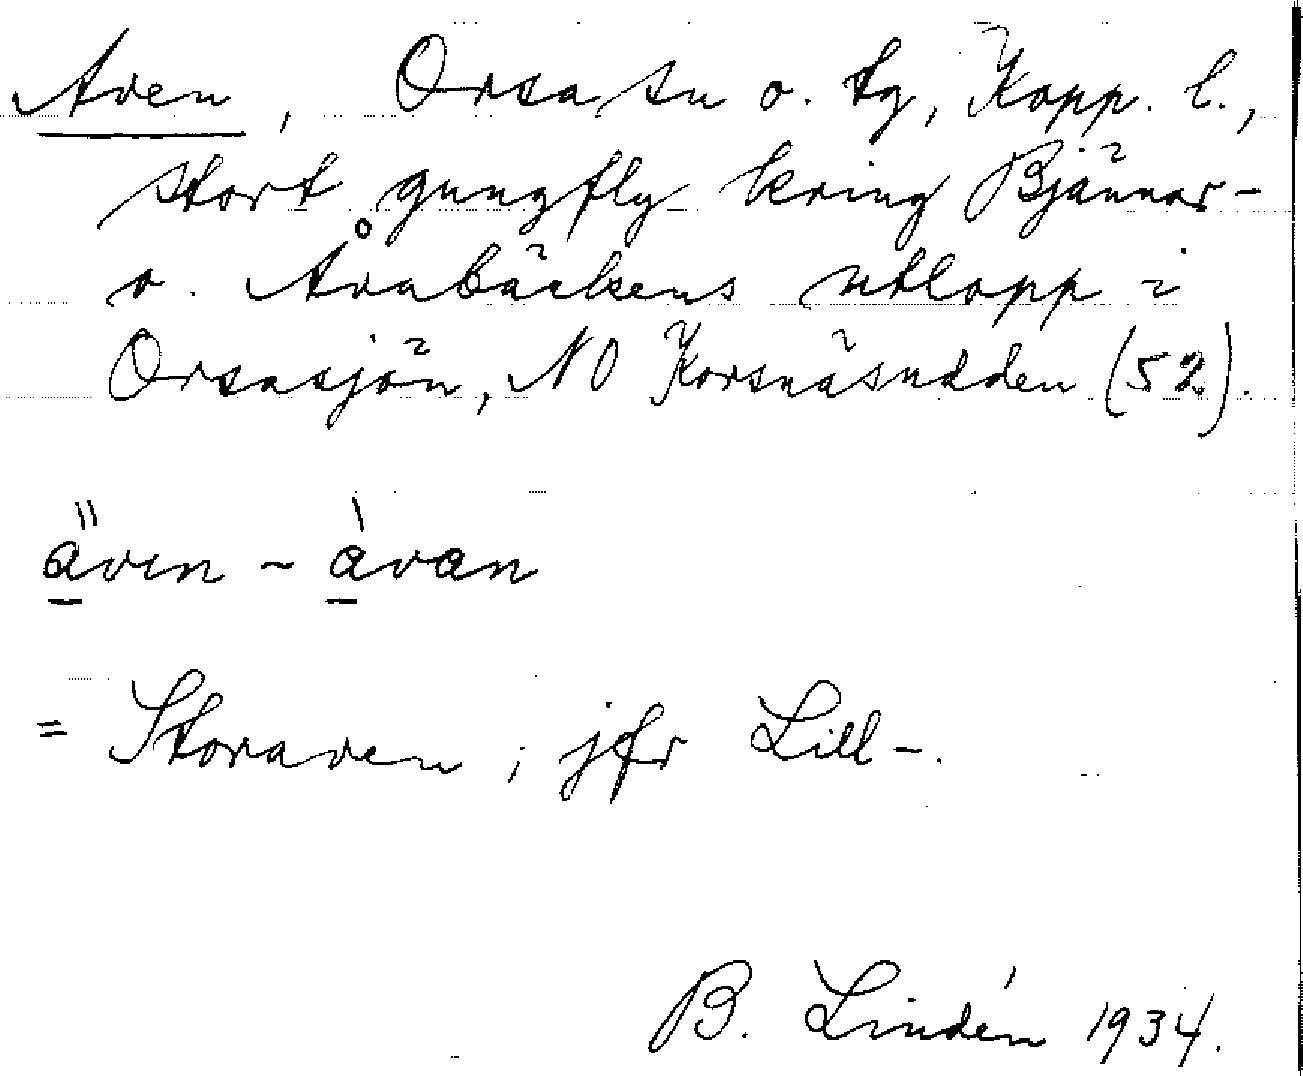 Aven, Orsa sn o. tg, Kopp. l.,
stort gungfly kring Bjännar-
o. Åvabäckens utlopp i
Orsasjön, NO Korsnäsudden (52).
även ~ àvan
= Storaven; jfr Lill-.
B. Lindén 1934.